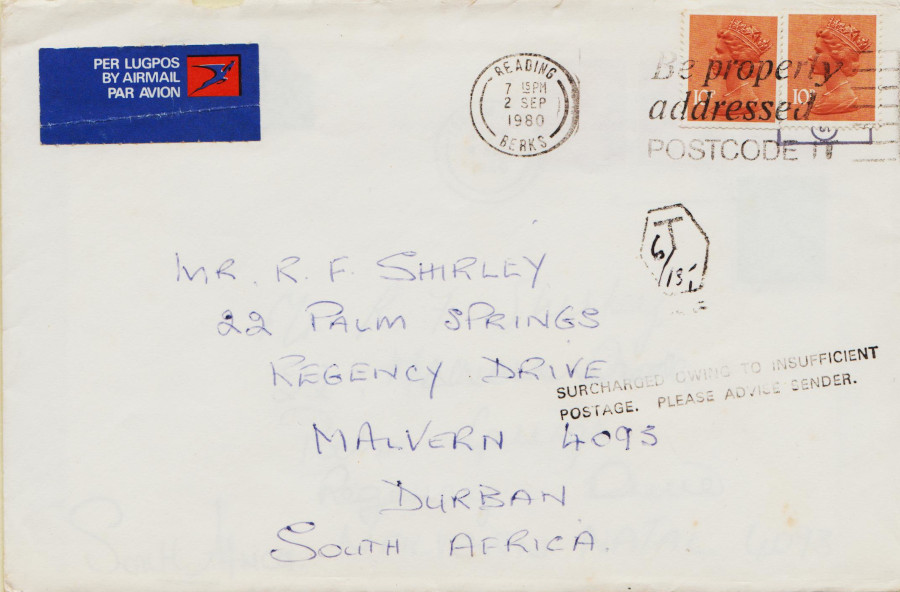 PER LUGPOS
BY AIRMAIL
PAR AVION
READING
7 15PM
2 SEP
1980
BERKS
10P 10P
Be properly
addressed
POSTCODE IT
T
6/13
MR. R. F. SHIRLEY
22 PALM SPRINGS
REGENCY DRIVE
MALVERN 4093
DURBAN
SOUTH AFRICA.
SURCHARGED OWING TO INSUFFICIENT
POSTAGE. PLEASE ADVICE SENDER.